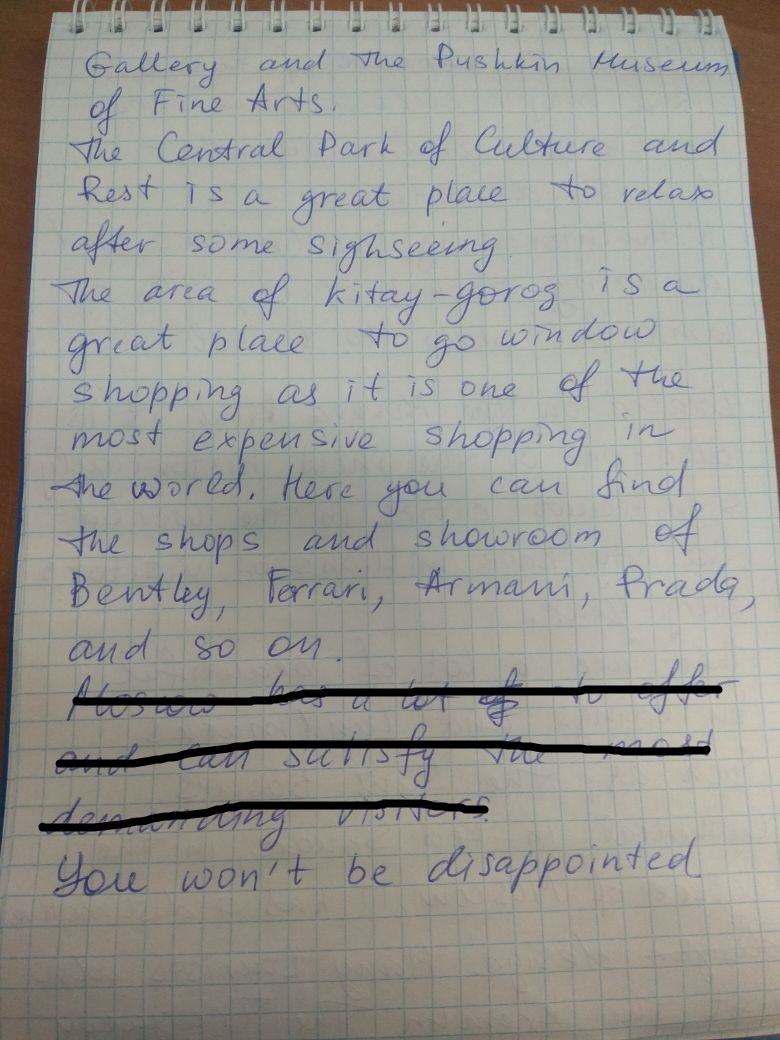 Gallery and the Pushkin Museum
of Fine Arts.
The Central Park of Culture and
Rest is a great place to relax
after some sighseeing
The area of Kitay-gorog is a
great place to go window
shopping as it is one of the
most expensive shopping in
the world. Here you can find
the shops and showroom of
Bentley, Ferrari, Armani, Prada,
and so on.
Moscow has a lot of to offer
and can satisfy the most
demanding visitors.
You won't be disappointed